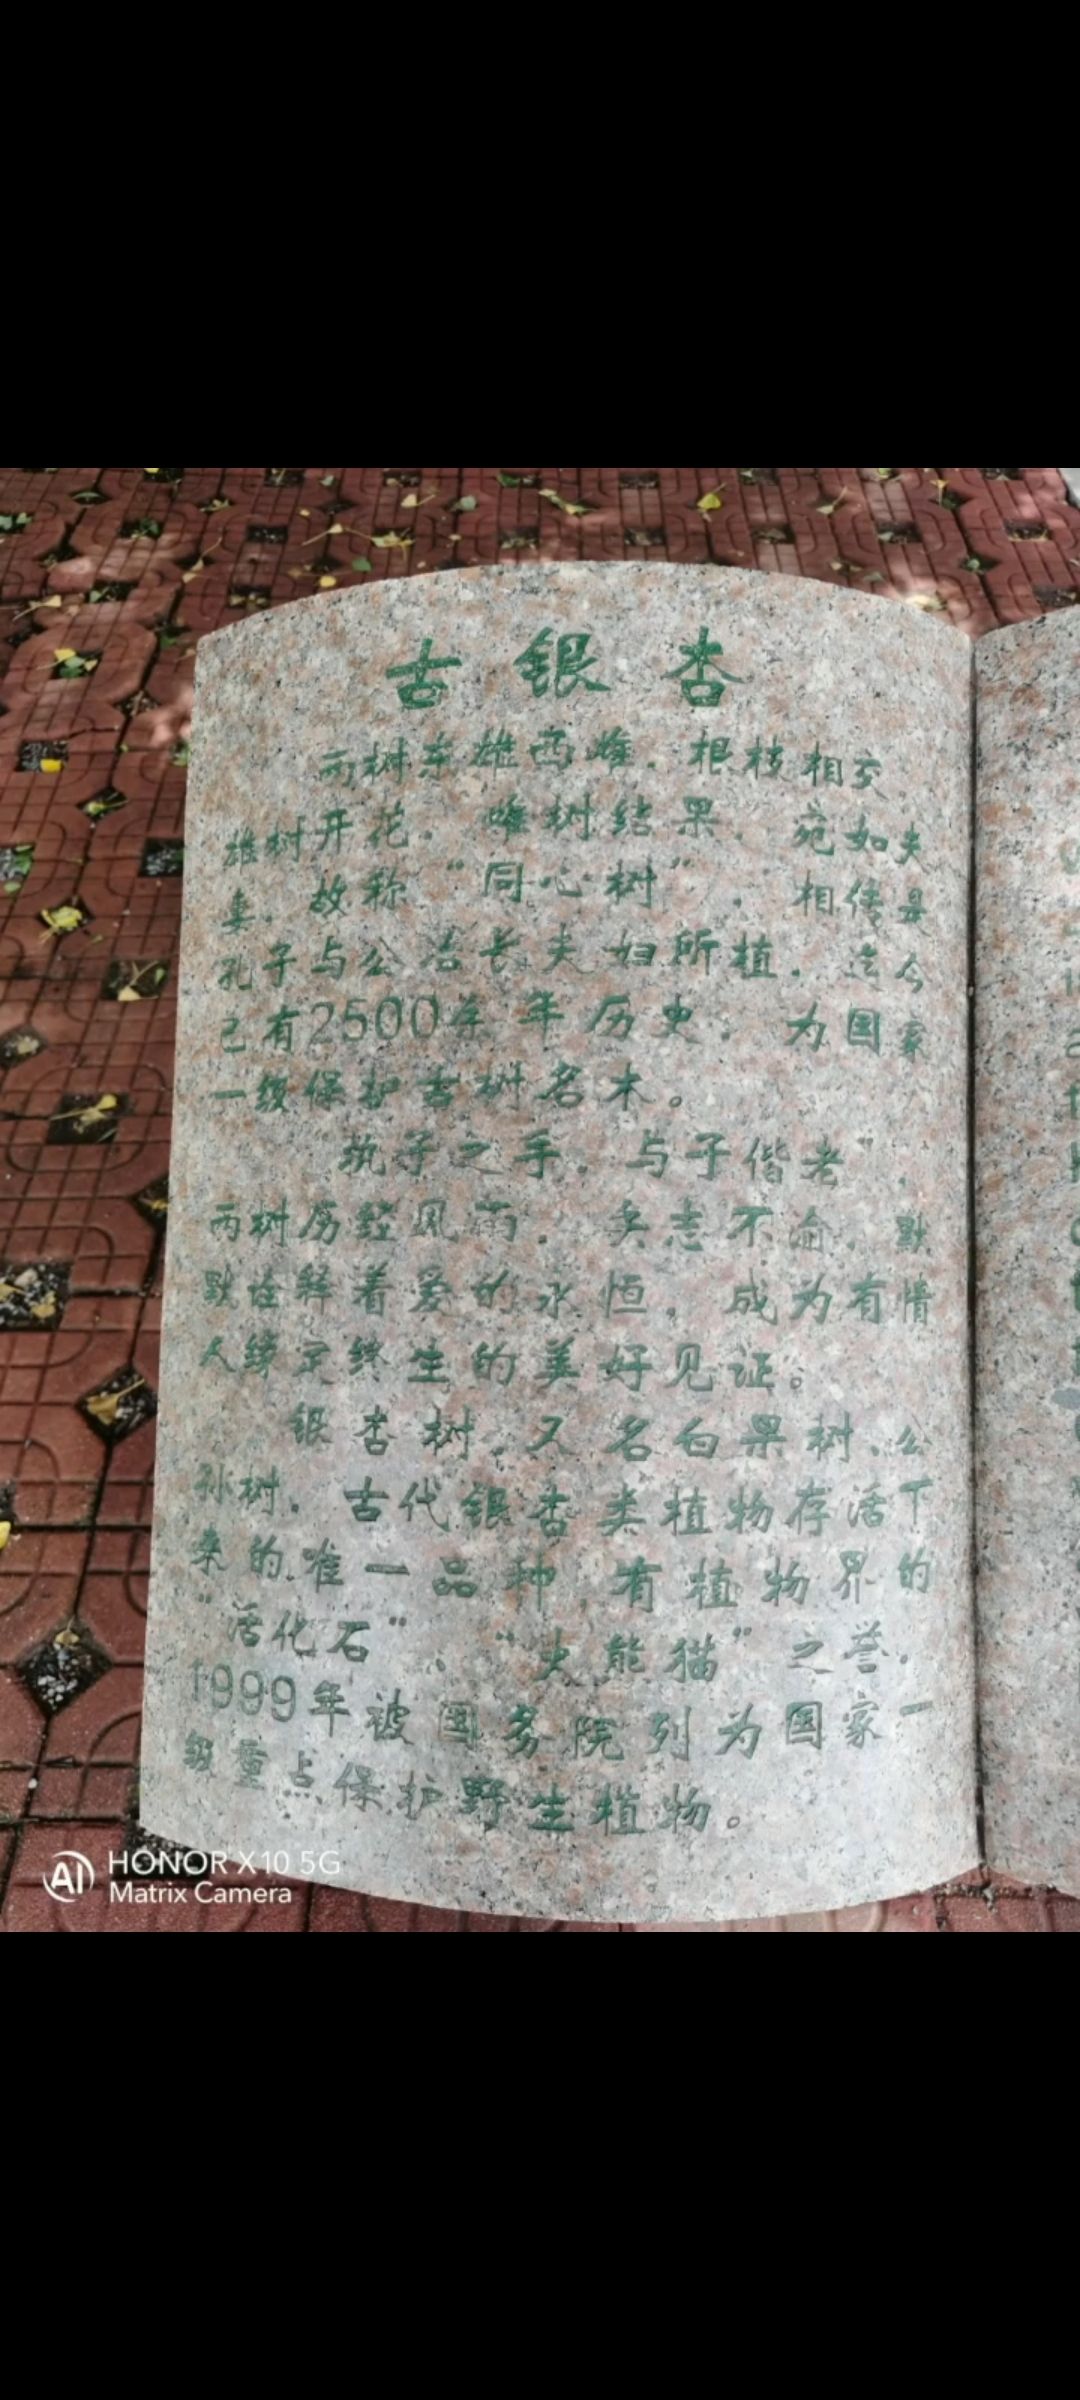 古银杏
两树东雄西雌，根枝相交，
雄树开花，雌树结果，宛如夫
妻，故称“同心树”，相传是
孔子与公冶长夫妇所植，迄今
已有2500余年历史，为国家
一级保护古树名木。
执子之手，与子偕老”，
两树历经风雨，矢志不渝，默
默诠释着爱的永恒，成为有情
人缘定终生的美好见证。
银杏树，又名白果树、公
孙树，古代银杏类植物存活下
来的唯一品种，有植物界的
“活化石”、“大熊猫”之誉，
1999年被国务院列为国家一
级重点保护野生植物。
AI HONOR X10 5G
Matrix Camera